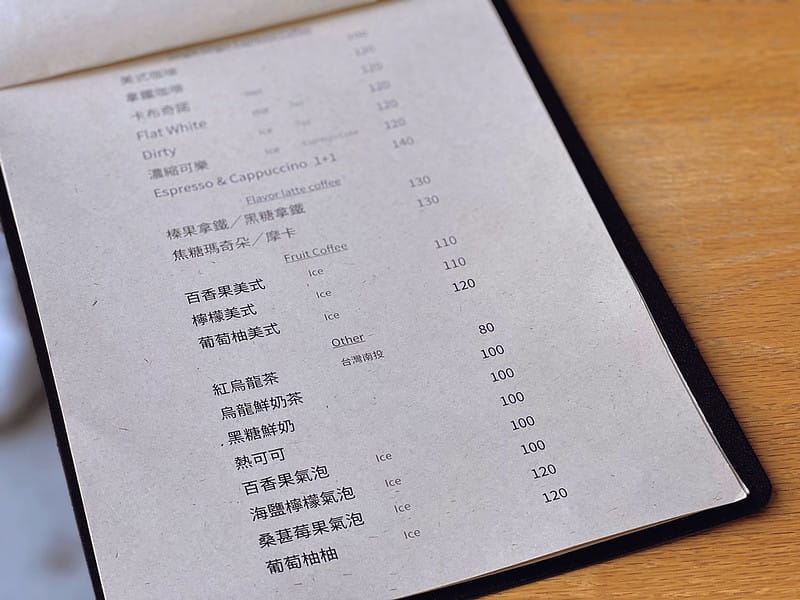 美式咖啡
拿鐵咖啡 120
卡布奇諾 120
Flat White 120
Dirty Ice 120
濃縮可樂 Ice 120
Espresso & Cappuccino 1+1 140
Flavor latte coffee
榛果拿鐵／黑糖拿鐵 130
焦糖瑪奇朵／摩卡 130
Fruit Coffee
百香果美式 Ice 110
檸檬美式 Ice 110
葡萄柚美式 Ice 120
Other
紅烏龍茶 台灣南投 80
烏龍鮮奶茶 100
黑糖鮮奶 100
熱可可 100
百香果氣泡 Ice 100
海鹽檸檬氣泡 Ice 100
桑葚莓果氣泡 Ice 120
葡萄柚柚 Ice 120